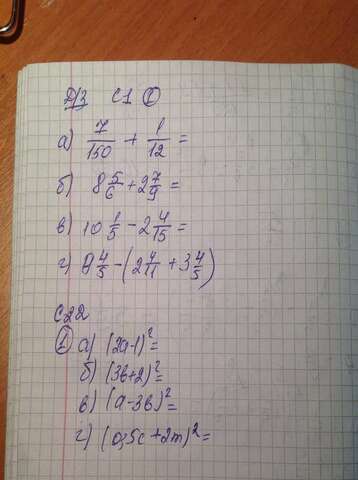 Д/З С1 ①
а) 7/150 + 1/12 =
б) 8 5/6 + 2 7/9 =
в) 10 1/5 - 2 4/15 =
г) 9 4/5 - (2 4/11 + 3 4/5)
С22
① а) (2a-1)² =
б) (3b+2)² =
в) (a-3b)² =
г) (0,5c+2m)² =